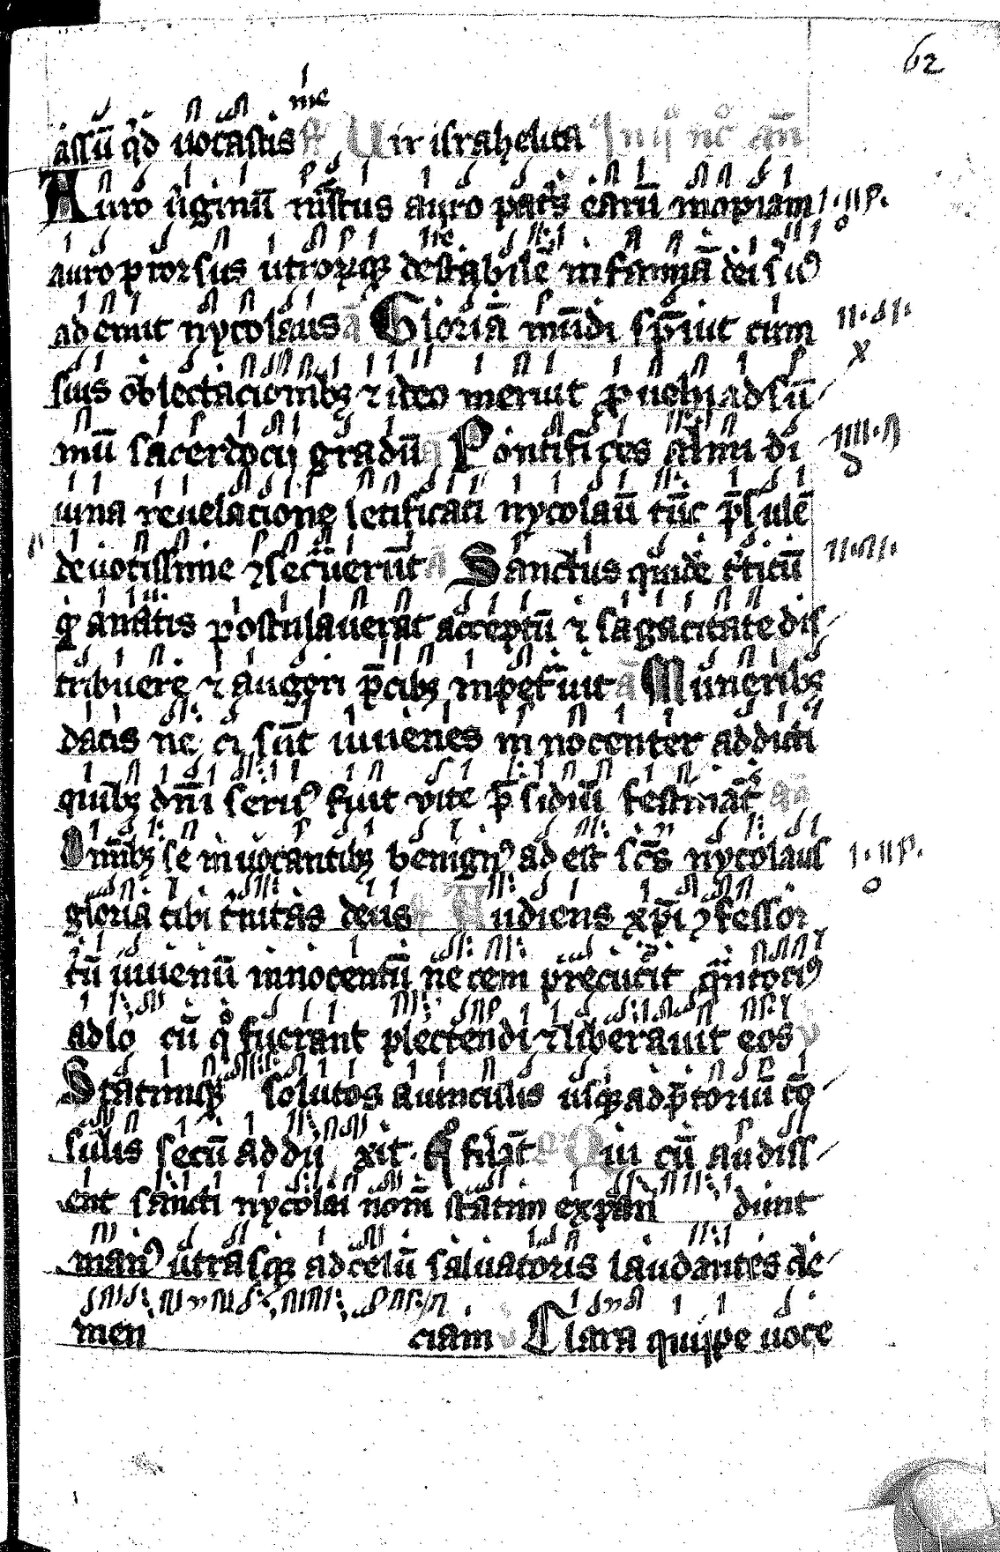 62
me
assū q̇d uocastis Vir israhelita In iij noc̄ an̄
Auro v̇ginū nr̄tus auro pat̄s earū inopiam
auro prorsus utrorūq; detestabilē infamiā dei s̄ꝰ
ademit nycolaus a Gloriā mūdi sp̄iuit cum
suis oblectacionibꝫ ⁊ ideo meruit ꝓuehi ad sū
mū sacerdocij gradū Pontifices almi di
uina reuelacione letificati nycolaū tūc p̄sulē
deuotissime ꝯsec̄uerūt a Sanctus quidē t̄ticū
q̇ a nautis postulauerat acceptū ⁊ sagacitate dis
tribuere ⁊ augeri p̄cibꝫ inpet̄uit a Muneribꝫ
datis neci sūt iuuenes innocenter addicti
quibꝫ dn̄i seruꝰ fuit vite p̄sidiū festinat̄
Omnibꝫ se inuocantibꝫ benignꝰ adest sc̄s nycolaus
gloria tibi t̄nitas deus Audiens xp̄i ꝯfessor
tū iuuenū innocentū necem precucit q̄ntociꝰ
ad lo cū q̊ fuerant plectendi ⁊ liberauit eos
Statimq; solutos a uinculis usq; ad p̄toriū cō
sulis secū addu xit A filat̄ Qui cū audiss
ent sancti nycolai nom̄ statim expan dunt
manꝰ utrasq; ad celū saluatoris laudantes cle
men ciam v Clara quippe uoce